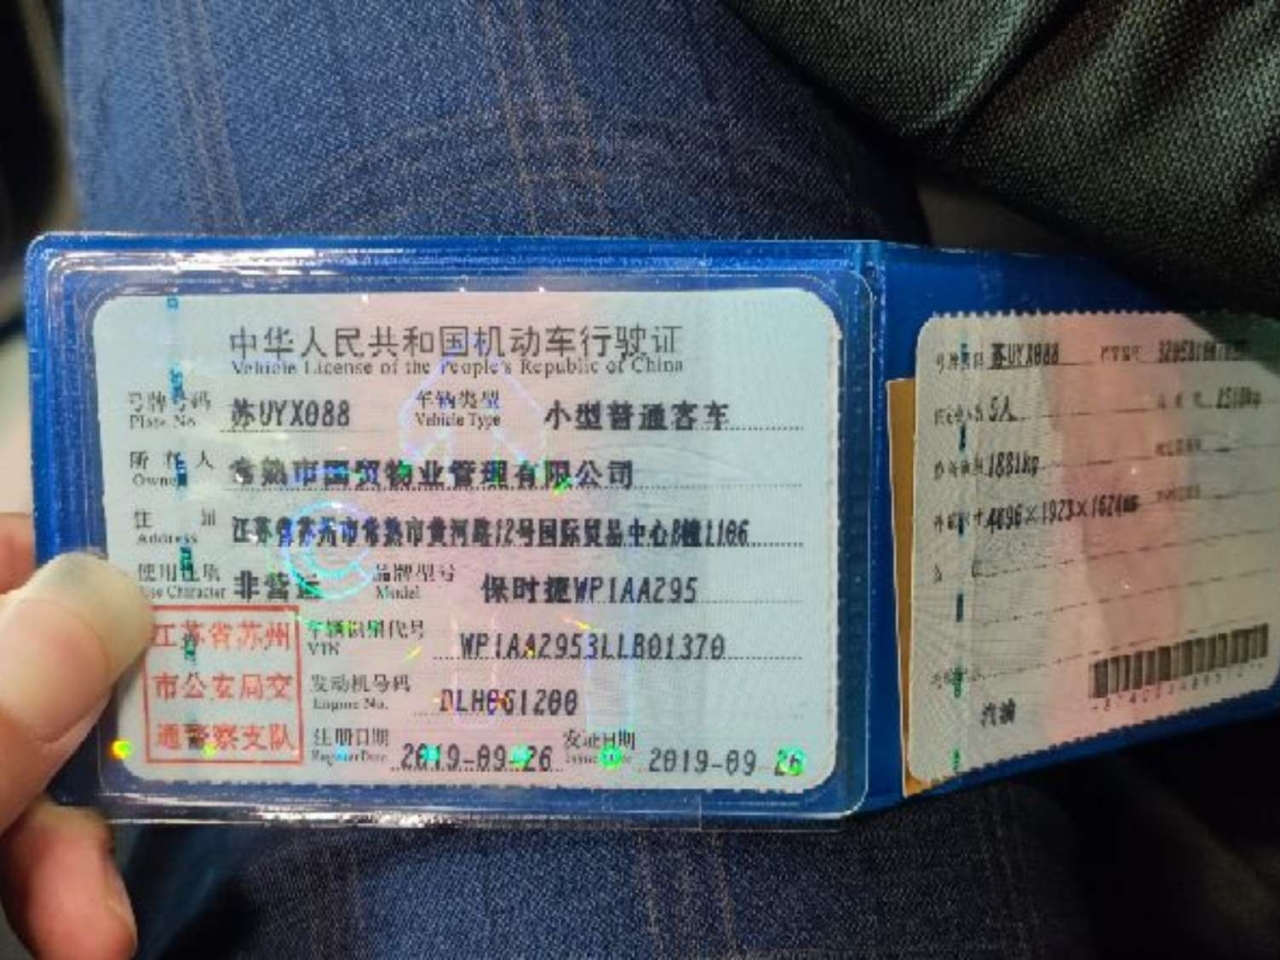 中华人民共和国机动车行驶证
Vehicle License of the People's Republic of China
号牌号码 苏UYX088 车辆类型 小型普通客车
Plate No. Vehicle Type
所有人 常熟市国贸物业管理有限公司
Owner
住 址 江苏省苏州市常熟市黄河路12号国际贸易中心B幢1106
Address
使用性质 非营运 品牌型号 保时捷WP1AA295
Use Character Model
江苏省苏州
市公安局交
通警察支队
车辆识别代号 WP1AA2953LLB01370
VIN
发动机号码 DLH061200
Engine No.
注册日期 2019-09-26 发证日期 2019-09-26
Register Date Issue Date
号牌号码 苏UYX088
5人
1881kg
外廓尺寸 4696×1923×1624mm
汽油